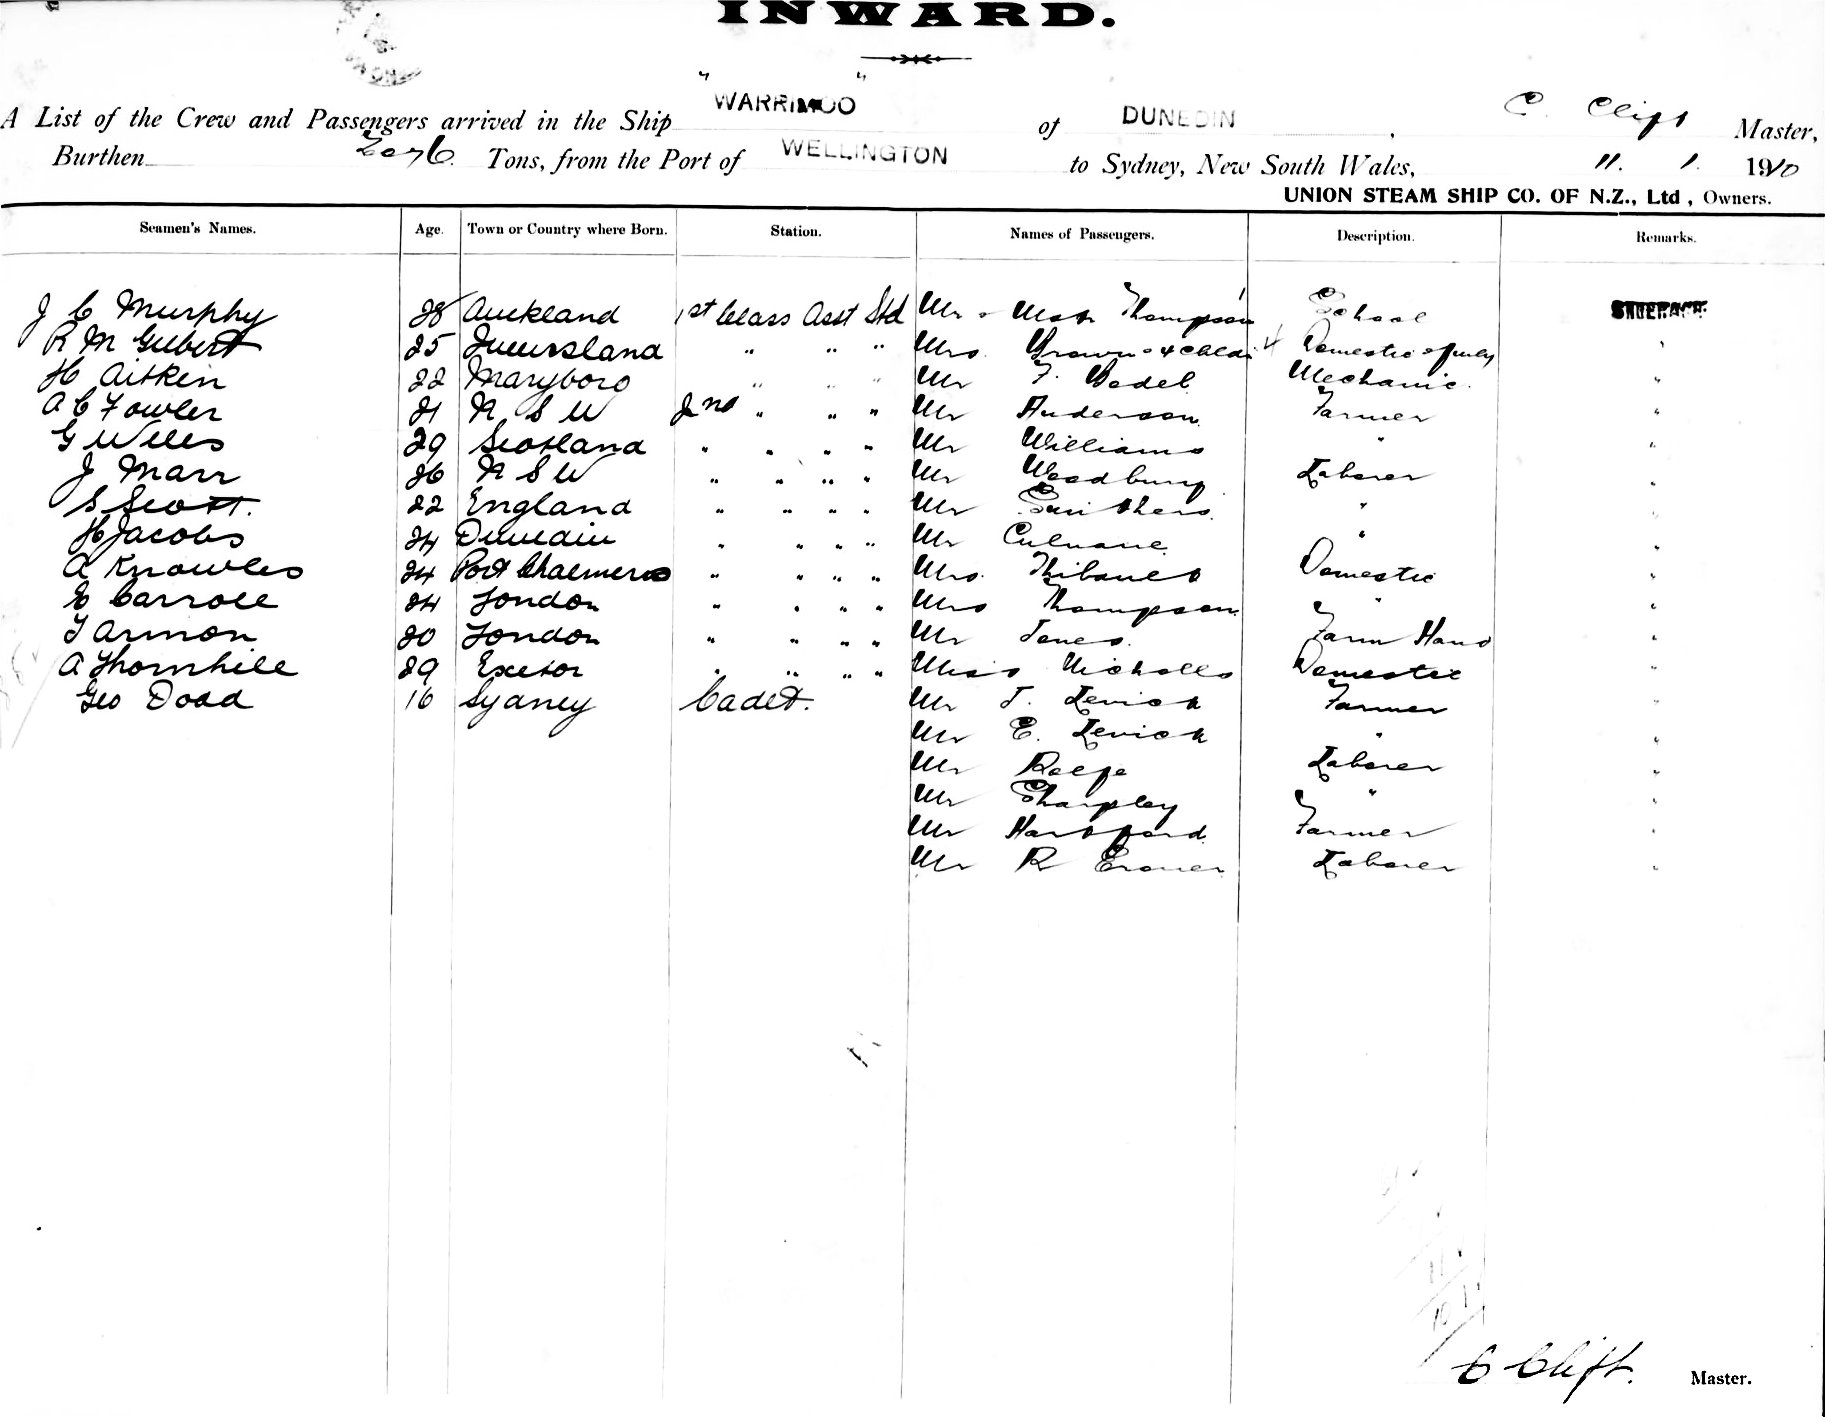 INWARD.
" WARRIMOO "
A List of the Crew and Passengers arrived in the Ship WARRIMOO of DUNEDIN, C. Clift Master,
Burthen 2076 Tons, from the Port of WELLINGTON to Sydney, New South Wales, 11. 1. 1910
UNION STEAM SHIP CO. OF N.Z., Ltd, Owners.
Seamen's Names. Age. Town or Country where Born. Station. Names of Passengers. Description. Remarks.
J C Murphy 28 Auckland 1st Class Asst Std Mr Thompson School
R M Gilbert 25 Queensland " " " Mrs. Brown & 4 Domestic
H Aitken 22 Maryboro " " " Mr F. Mechanic.
A C Fowler 21 N S W 2nd " " " Mr Anderson Farmer "
G Willis 29 Scotland " " " " Mr Williams " "
J Marr 26 N S W " " " " Mr Woodbury Laborer "
S Scott. 22 England " " " " Mr " "
H Jacobs 24 Dunedin " " " " Mr Culnane " "
A Knowles 24 Port Chalmers " " " " Mrs. Domestic "
E Carroll 24 London " " " " Mrs Thompson " "
T Armon 20 London " " " " Mr Jones. Farm Hand "
A Thornhill 29 Exetor " " " " Miss Nicholls Domestic "
Geo Dodd 16 Sydney Cadet. Mr J. Levick Farmer "
Mr E. Levick " "
Mr Laborer "
Mr Sharpley " "
Mr Hartford Farmer "
Mr R Laborer "
C Clift. Master.